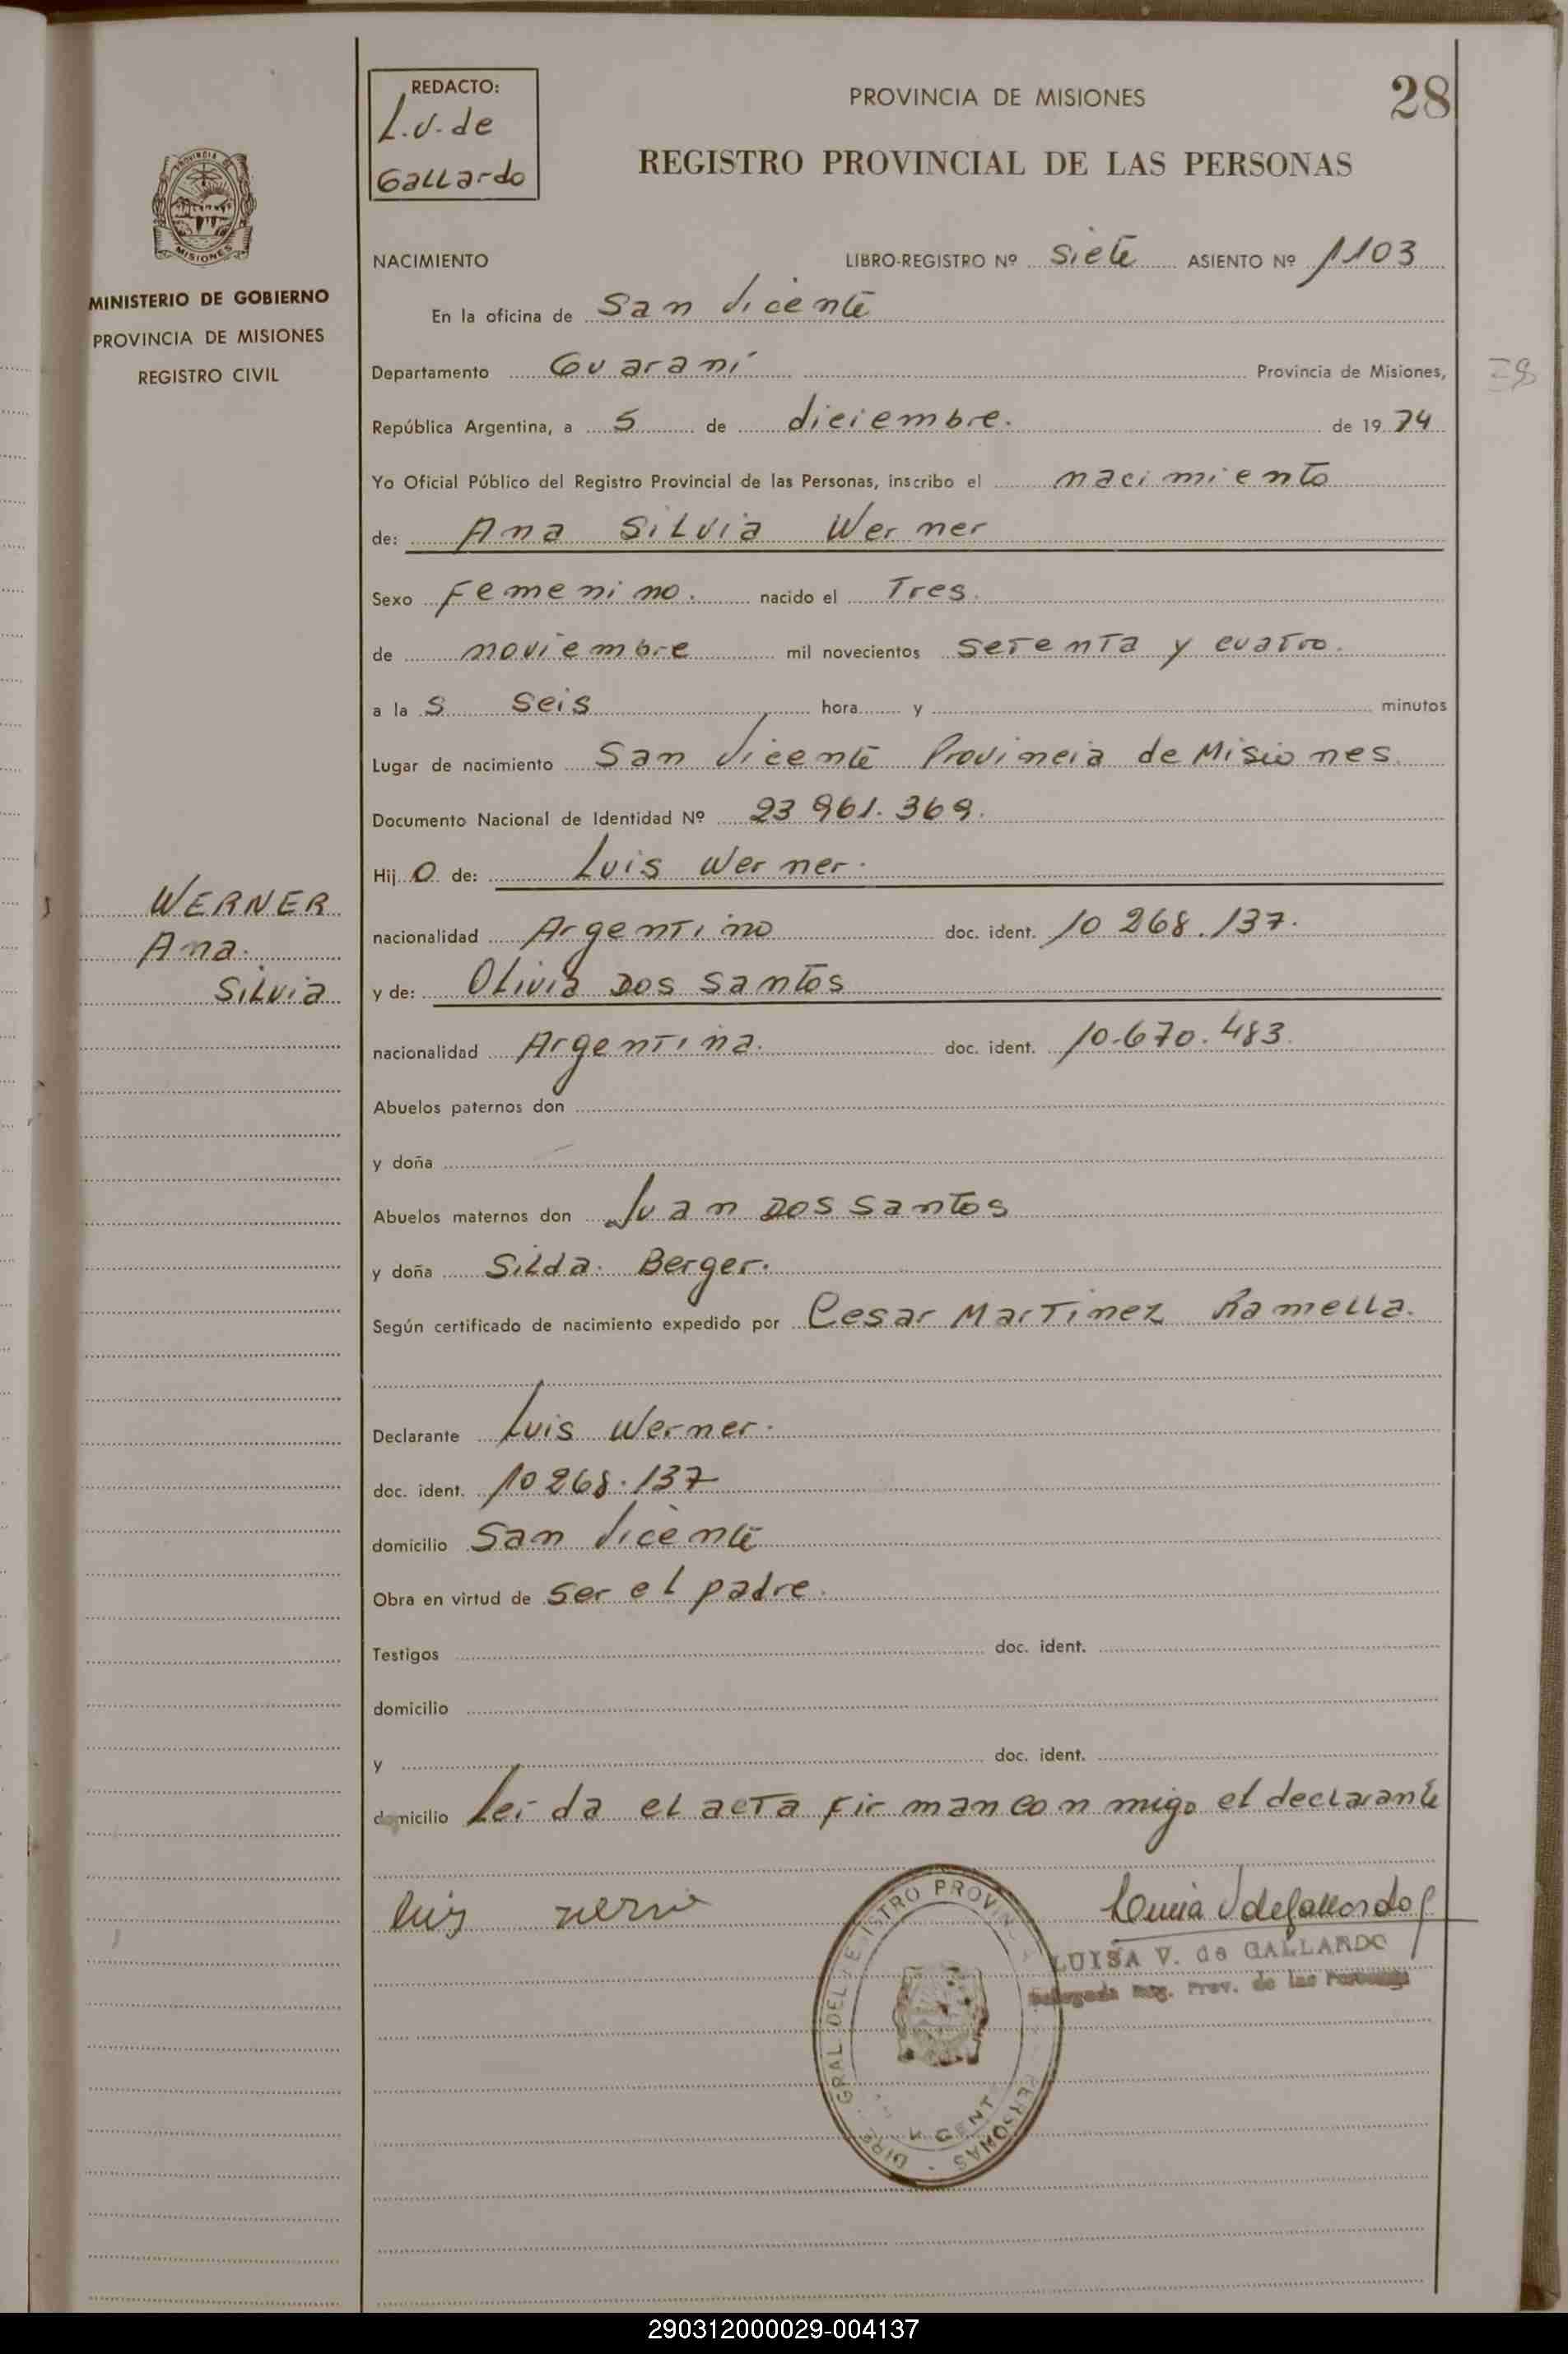 REDACTO:
L.V. de
Gallardo
PROVINCIA DE MISIONES
28
REGISTRO PROVINCIAL DE LAS PERSONAS
MISIONES
MINISTERIO DE GOBIERNO
PROVINCIA DE MISIONES
REGISTRO CIVIL
NACIMIENTO LIBRO-REGISTRO Nº siete ASIENTO Nº 1103
En la oficina de San Vicente
Departamento Guaraní Provincia de Misiones,
28
República Argentina, a 5 de diciembre. de 19 74
Yo Oficial Público del Registro Provincial de las Personas, inscribo el nacimiento
de: Ana Silvia Werner
Sexo Femenino. nacido el Tres.
de noviembre mil novecientos setenta y cuatro.
a la s seis hora y minutos
Lugar de nacimiento San Vicente Provincia de Misiones.
Documento Nacional de Identidad Nº 23 961.369.
Hij o de: Luis Werner.
WERNER
Ana.
Silvia
nacionalidad Argentino doc. ident. 10 268.137.
y de: Olivia Dos Santos
nacionalidad Argentina. doc. ident. 10.670.483.
Abuelos paternos don
y doña
Abuelos maternos don Juan Dos Santos
y doña Silda. Berger.
Según certificado de nacimiento expedido por Cesar Martinez Ramella.
Declarante Luis Werner.
doc. ident. 10 268.137
domicilio San Vicente
Obra en virtud de ser el padre.
Testigos doc. ident.
domicilio
y doc. ident.
domicilio Leida el acta firman conmigo el declarante
LUISA V. de GALLARDO
Delegada Reg. Prov. de las Personas
290312000029-004137